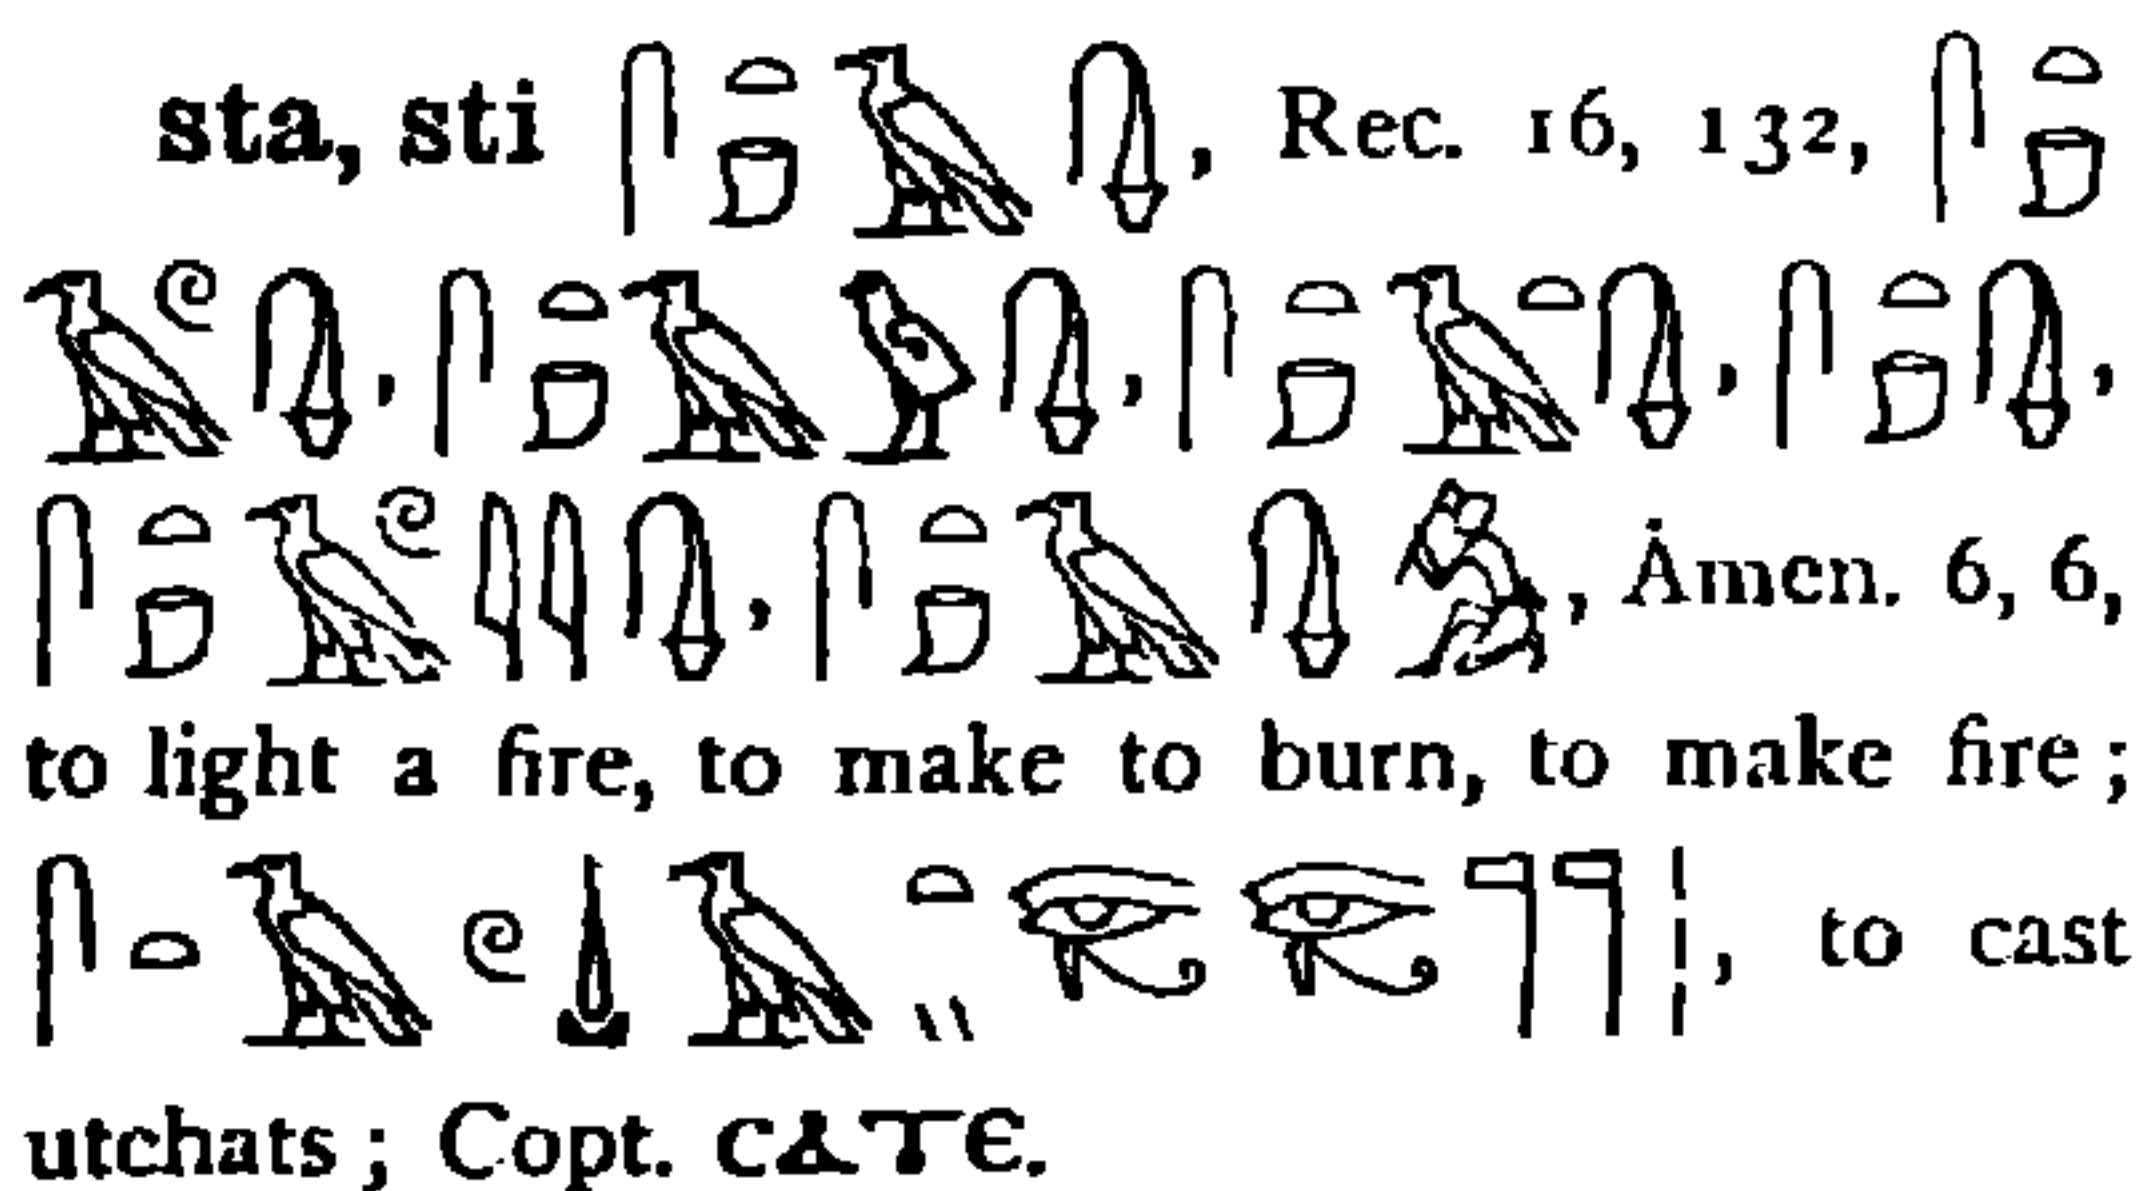 sta, sti 𓋴𓏏𓍔𓄿𓊮, Rec. 16, 132, 𓋴𓏏𓍔
𓄿𓏲𓊮, 𓋴𓏏𓍔𓄿𓅱𓊮, 𓋴𓏏𓍔𓄿𓏏𓊮, 𓋴𓏏𓍔𓊮,
𓋴𓏏𓍔𓄿𓏲𓇋𓇋𓊮, 𓋴𓏏𓍔𓄿𓊮𓀁, Ȧmen. 6, 6,
to light a fire, to make to burn, to make fire;
𓋴𓏏𓄿𓏲𓍑𓄿𓏏𓏭𓂀𓂀𓊹𓊹𓏫, to cast
utchats; Copt. ⲥⲁⲧⲉ.